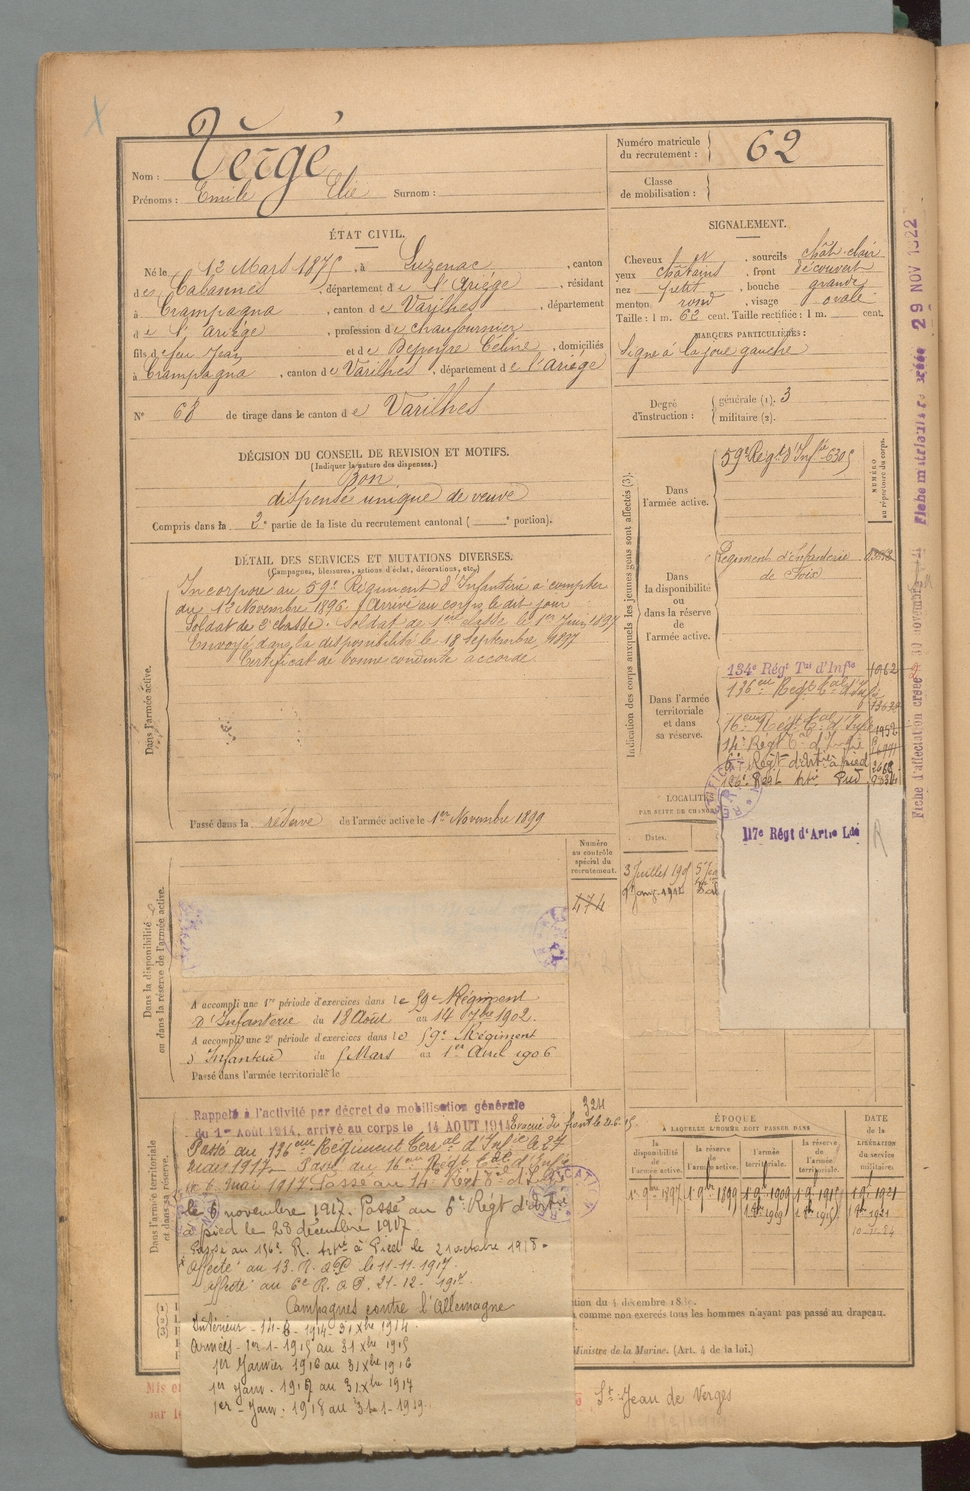 Nom : Vergé
Prénoms : Emile Elie Surnom :
Numéro matricule
du recrutement : 62
Classe
de mobilisation :
ÉTAT CIVIL.
Né le 12 Mars 1875, à Luzenac, canton
des Cabannes, département de l'Ariège, résidant
à Crampagna, canton de Varilhes, département
de l'ariège, profession de chaufournier
fils de feu Jean et de Depeyre Céline, domiciliés
à Crampagna, canton de Varilhes, département de l'ariège
N° 68 de tirage dans le canton de Varilhes
DÉCISION DU CONSEIL DE REVISION ET MOTIFS.
(Indiquer la nature des dispenses.)
Bon
dispensé unique de veuve
Compris dans la 2e partie de la liste du recrutement cantonal ( e portion).
DÉTAIL DES SERVICES ET MUTATIONS DIVERSES.
(Campagnes, blessures, actions d'éclat, décorations, etc.)
Dans l'armée active.
Incorporé au 59e Régiment d'Infanterie à compter
du 12 Novembre 1896. Arrivé au corps le dit jour
Soldat de 2e classe. Soldat de 1ere classe le 1er Juin 1897
Envoyé dans la disponibilité le 18 septembre 1897
Certificat de bonne conduite accordé
Passé dans la réserve de l'armée active le 1er Novembre 1899
SIGNALEMENT.
Cheveux et, sourcils chât-clair
yeux châtains, front découvert
nez petit, bouche grande
menton rond, visage ovale
Taille : 1 m. 62 cent. Taille rectifiée : 1 m. cent.
MARQUES PARTICULIÈRES :
Signe à la joue gauche
Degré
d'instruction :
générale (1). 3
militaire (2).
Indication des corps auxquels les jeunes gens sont affectés (3).
NUMÉRO
au répertoire du corps.
Dans
l'armée active.
59e Régt d'Infie 6305
Dans
la disponibilité
ou
dans la réserve
de
l'armée active.
Régiment d'Infanterie
de Foix
Dans l'armée
territoriale
et dans
sa réserve.
134e Régt Tal d'Infie 1062
136eme Regt Cal d'Infie 13622
16eme Regt Cal d'Infie 1952
14e Régt Cal d'Infie
6e Régt d'Artie à pied 3668
136e Régt Artie Pied
117e Régt d'Artie Lde
LOCALITÉS
PAR SUITE DE CHANGE
Dates.
3 Juillet 190
Numéro
au contrôle
spécial du
recrutement.
474
Dans la disponibilité
ou dans la réserve de l'armée active.
A accompli une 1re période d'exercices dans le 59e Régiment
d'Infanterie du 18 Août au 14 7bre 1902.
A accompli une 2e période d'exercices dans le 59e Régiment
d'Infanterie du 5 Mars au 1er Avril 1906
Passé dans l'armée territoriale le
324
Dans l'armée territoriale
et dans sa réserve.
Rappelé à l'activité par décret de mobilisation générale
du 1er Août 1914, arrivé au corps le 14 AOUT 1914 Evacué du front le 26.6.15
Passé au 136eme Régiment Terral d'Infie le 27
mars 1917. Passé au 16eme Régt Cal d'Infie
le 6 mai 1917. Passé au 14e Régt
le 6 novembre 1917. Passé au 6e Régt d'Artie
à pied le 28 décembre 1917
Passé au 136e R. Artie à Pied le 21 octobre 1918.
Affecté au 13. R. a P. le 11-11-1917.
affecté au 6e R. a P. 21-12-1917.
Campagnes contre l'Allemagne
Intérieur - 14-8-1914 - 31 Xbre 1914
Armées - 1er-1-1915 au 31 Xbre 1915
1er Janvier 1916 au 31 Xbre 1916
1er Janv. 1917 au 31 Xbre 1917
1er Janv. 1918 au 31-1-1919
ÉPOQUE
À LAQUELLE L'HOMME DOIT PASSER DANS
la disponibilité de l'armée active.
la réserve de l'armée active.
l'armée territoriale.
la réserve de l'armée territoriale.
DATE
de la
LIBÉRATION
du service
militaire
1er 9bre 1897
1 9bre 1899
10-11-24
tion du 4 décembre 18
à comme non exercés tous les hommes n'ayant pas passé au drapeau.
Ministre de la Marine. (Art. 4 de la loi.)
St Jean de Verges
Mis e
par l
Fiche d'affectation créée 30 novembre
Fiche matricule 29 NOV 1922